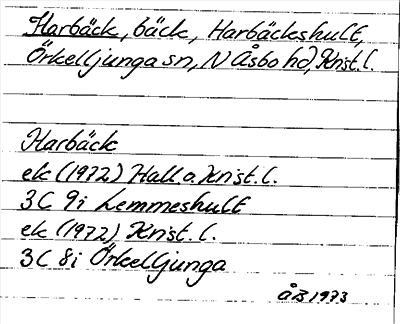 Harbäck, bäck, Harbäckshult,
Örkelljunga sn, N Åsbo hd, Krist. l.
Harbäck
ek (1972) Hall. o. Krist. l.
3C 9i Lemmeshult
ek (1972) Krist. l.
3C 8i Örkelljunga
ÅB 1973